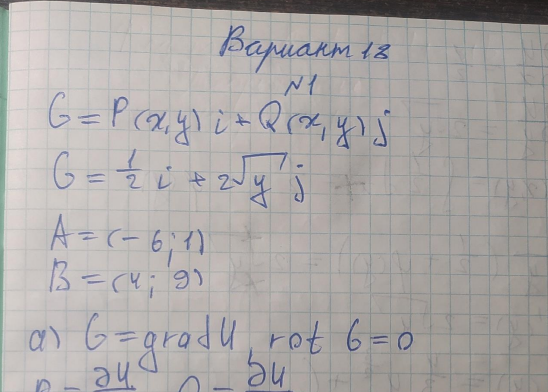 Вариант 18
N1
G = P(x,y) i + Q(x,y) j
G = 1/2 i + 2√y j
A = (-6; 1)
B = (4; 9)
a) G = grad U, rot G = 0
P = ∂U Q = ∂U